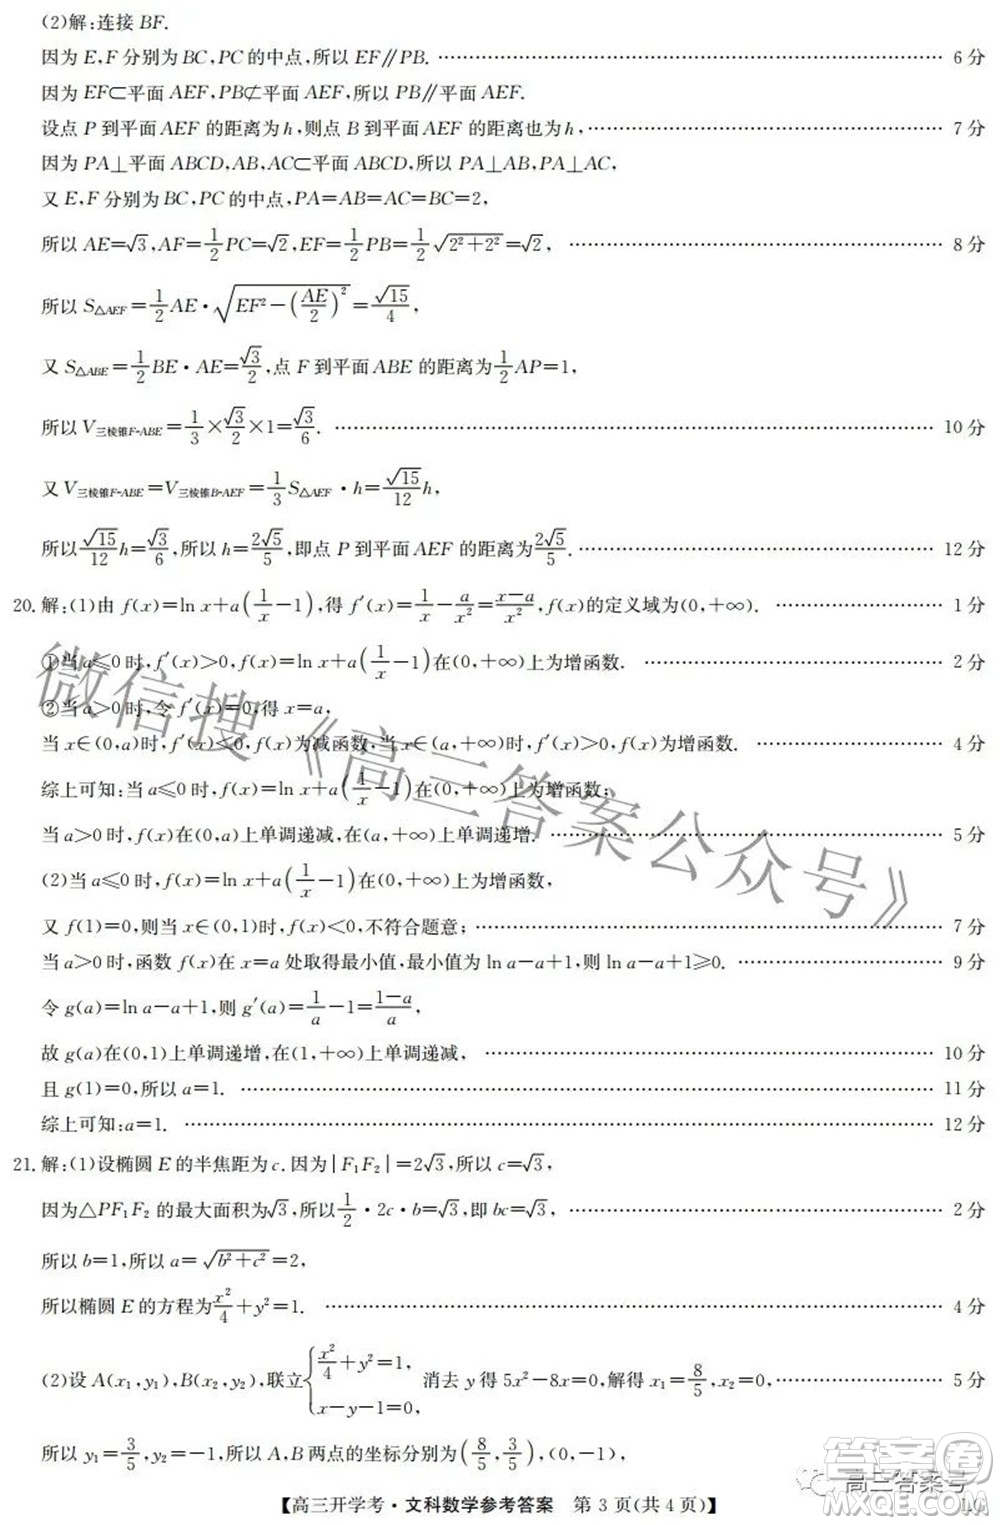 (2)解:连接 BF.
因为 E,F 分别为 BC,PC 的中点,所以 EF∥PB. …… 6 分
因为 EF⊂平面 AEF,PB⊄平面 AEF,所以 PB∥平面 AEF.
设点 P 到平面 AEF 的距离为 h,则点 B 到平面 AEF 的距离也为 h, …… 7 分
因为 PA⊥平面 ABCD,AB,AC⊂平面 ABCD,所以 PA⊥AB,PA⊥AC,
又 E,F 分别为 BC,PC 的中点,PA=AB=AC=BC=2,
所以 AE=√3,AF=1/2 PC=√2,EF=1/2 PB=1/2 √(2²+2²)=√2, …… 8 分
所以 S△AEF=1/2 AE·√(EF²-(AE/2)²)=√15/4,
又 S△ABE=1/2 BE·AE=√3/2,点 F 到平面 ABE 的距离为 1/2 AP=1,
所以 V三棱锥F-ABE=1/3×√3/2×1=√3/6. …… 10 分
又 V三棱锥F-ABE=V三棱锥B-AEF=1/3 S△AEF·h=√15/12 h,
所以 √15/12 h=√3/6,所以 h=2√5/5,即点 P 到平面 AEF 的距离为 2√5/5. …… 12 分
20. 解:(1)由 f(x)=ln x+a(1/x-1),得 f′(x)=1/x-a/x²=(x-a)/x²,f(x)的定义域为(0,+∞). …… 1 分
①当 a≤0 时,f′(x)>0,f(x)=ln x+a(1/x-1)在(0,+∞)上为增函数. …… 2 分
②当 a>0 时,令 f′(x)=0,得 x=a,
当 x∈(0,a)时,f′(x)<0,f(x)为减函数,当 x∈(a,+∞)时,f′(x)>0,f(x)为增函数. …… 4 分
综上可知:当 a≤0 时,f(x)=ln x+a(1/x-1)在(0,+∞)上为增函数;
当 a>0 时,f(x)在(0,a)上单调递减,在(a,+∞)上单调递增. …… 5 分
(2)当 a≤0 时,f(x)=ln x+a(1/x-1)在(0,+∞)上为增函数,
又 f(1)=0,则当 x∈(0,1)时,f(x)<0,不符合题意; …… 7 分
当 a>0 时,函数 f(x)在 x=a 处取得最小值,最小值为 ln a-a+1,则 ln a-a+1≥0. …… 9 分
令 g(a)=ln a-a+1,则 g′(a)=1/a-1=(1-a)/a,
故 g(a)在(0,1)上单调递增,在(1,+∞)上单调递减, …… 10 分
且 g(1)=0,所以 a=1. …… 11 分
综上可知:a=1. …… 12 分
21. 解:(1)设椭圆 E 的半焦距为 c.因为|F₁F₂|=2√3,所以 c=√3,
因为△PF₁F₂ 的最大面积为√3,所以 1/2·2c·b=√3,即 bc=√3, …… 2 分
所以 b=1,所以 a=√(b²+c²)=2,
所以椭圆 E 的方程为 x²/4+y²=1. …… 4 分
(2)设 A(x₁,y₁),B(x₂,y₂),联立{x²/4+y²=1, x-y-1=0, 消去 y 得 5x²-8x=0,解得 x₁=8/5,x₂=0, …… 5 分
所以 y₁=3/5,y₂=-1,所以 A,B 两点的坐标分别为(8/5,3/5),(0,-1),
【高三开学考·文科数学参考答案 第 3 页(共 4 页)】
LG
微信搜《高三答案公众号》
高三答案号
答案圈
MXQE.COM